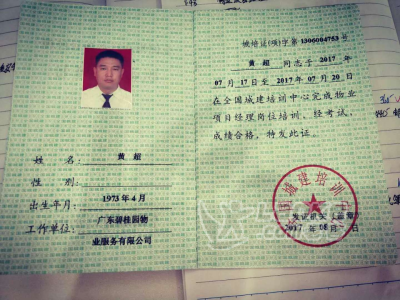 姓 名 黄 超
性 别
出生年月 1973 年 4 月
工作单位 广东碧桂园物
业服务有限公司
城培证(项)字第 1306004753 号
黄 超 同志于 2017 年
07 月 17 日至 2017 年 07 月 20 日
在全国城建培训中心完成物业
项目经理岗位培训，经考试，
成绩合格，特发此证。
发证机关（盖章）
2017 年 08 月